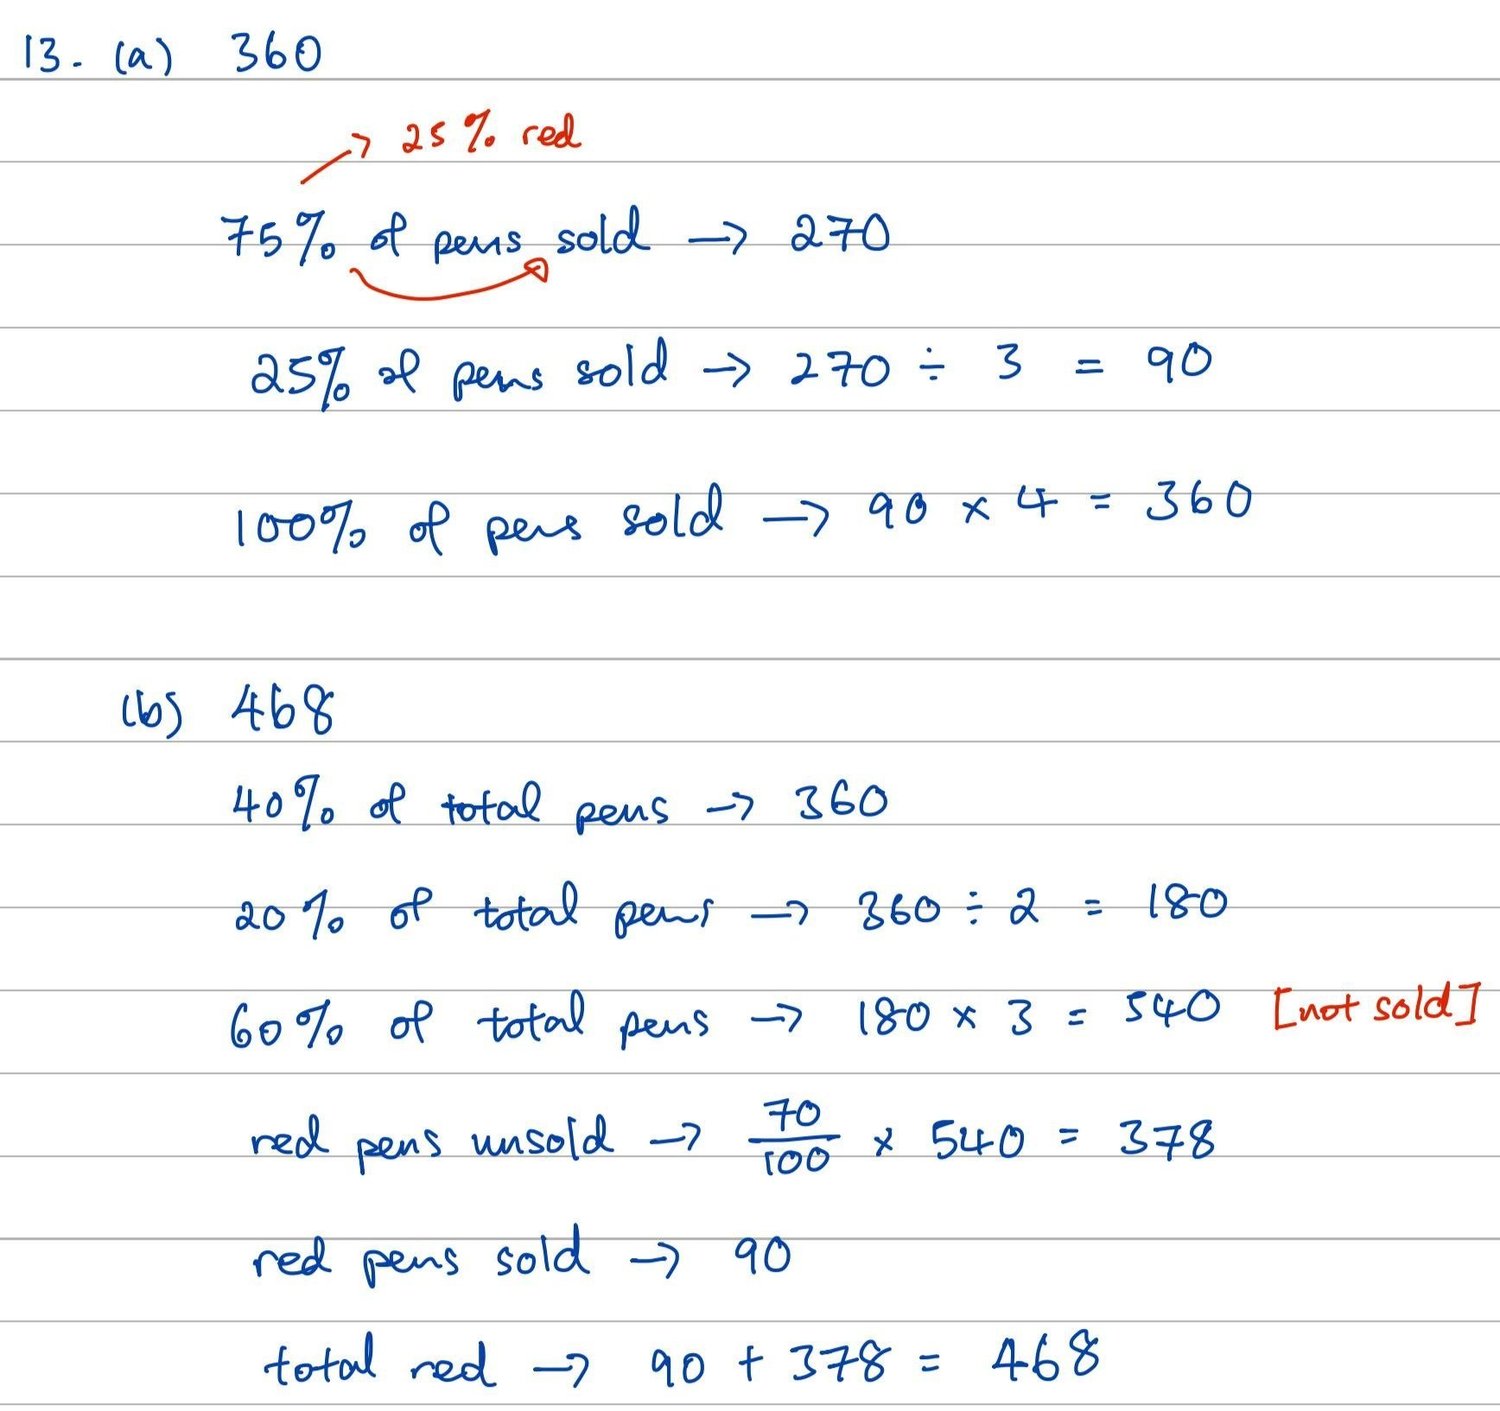 13. (a) 360
→ 25% red
75% of pens sold → 270
25% of pens sold → 270 ÷ 3 = 90
100% of pens sold → 90 × 4 = 360
(b) 468
40% of total pens → 360
20% of total pens → 360 ÷ 2 = 180
60% of total pens → 180 × 3 = 540 [not sold]
red pens unsold → 70/100 × 540 = 378
red pens sold → 90
total red → 90 + 378 = 468